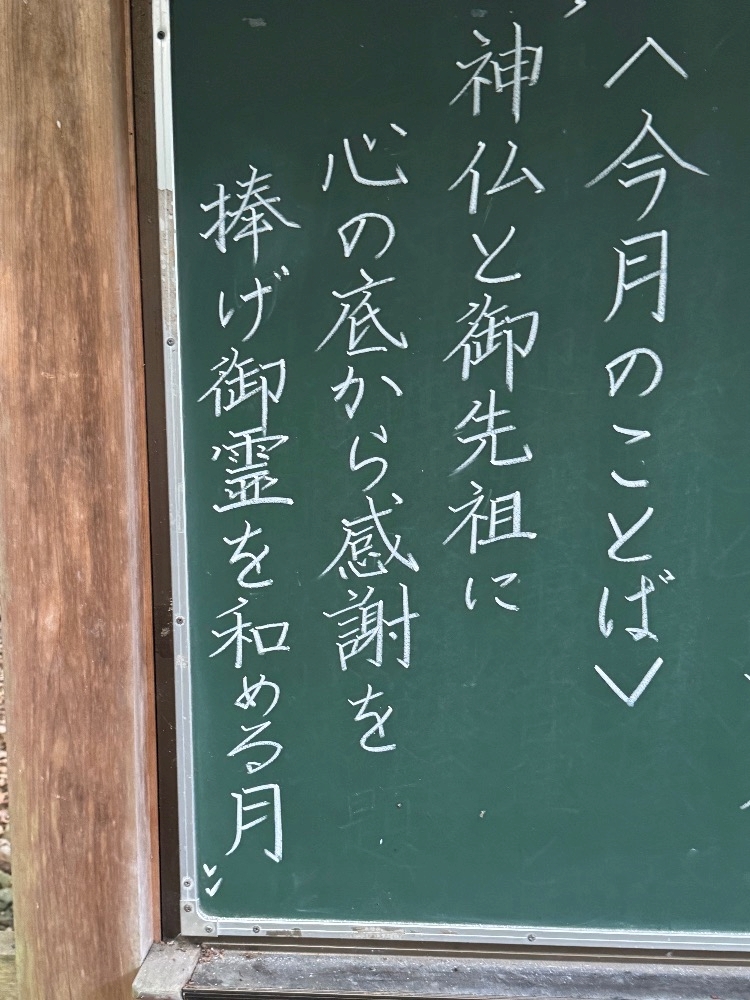 〈今月のことば〉
神仏と御先祖に
心の底から感謝を
捧げ御霊を和める月